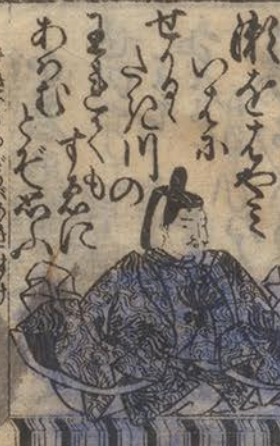 瀬をはやみ
いはに
せかるゝ
たき川の
われても
すゑに
あはむ
とぞ思ふ